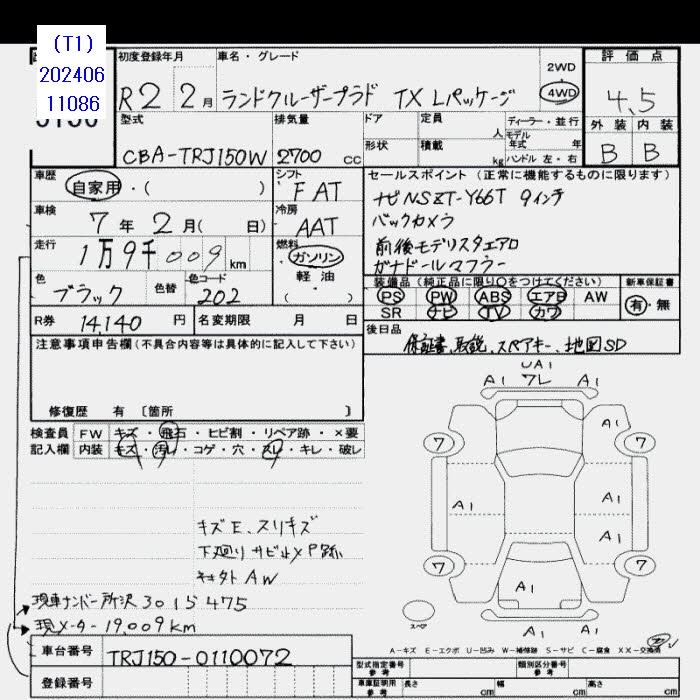 (T1)
202406
11086
初度登録年月
車名・グレード
評価点
R2 2月
ランドクルーザープラド TX Lパッケージ
2WD
4WD
4.5
外装 内装
B B
型式
排気量
ドア
定員
人
ディーラー・並行
モデル年式 年式
CBA-TRJ150W
2700 cc
形状
積載
kg
ハンドル 左・右
車歴
自家用・( )
シフト
FAT
セールスポイント (正常に機能するものに限ります)
ナビNSZT-Y66T 9インチ
バックカメラ
前後モデリスタエアロ
ガナドールマフラー
車検
7年 2月( 日)
冷房
AAT
走行
1万9千009km
燃料
ガソリン
軽油
・( )
色
ブラック
色替
色コード
202
装備品 (純正品に限り○をつけてください)
新車保証書
PS PW ABS エアB AW
SR ナビ TV カワ
有・無
R券 14,140 円
名変期限 月 日
後日品
保証書、取説、スペアキー、地図SD
注意事項申告欄 (不具合内容等は具体的に記入して下さい)
修復歴 有 〔箇所 〕
検査員 FW キズ・飛石・ヒビ割・リペア跡・×要
記入欄 内装 キズ・汚レ・コゲ・穴・スレ・キレ・破レ
キズE、スリキズ
下廻り サビ止メP跡
キキタト AW
現車ナンバー所沢 301ら475
現メーター 19,009km
車台番号 TRJ150-0110072
登録番号
UA1
A1 7L A1
7 A1 7
A1 A1
A1
7 A1 7
スペア
A1 A1
A-キズ E-エクボ U-凹み W-補修跡 S-サビ C-腐食 XX-交換済
型式指定番号 参考
類別区分番号 参考
車庫証明用 参考
長さ cm 幅 cm 高さ cm